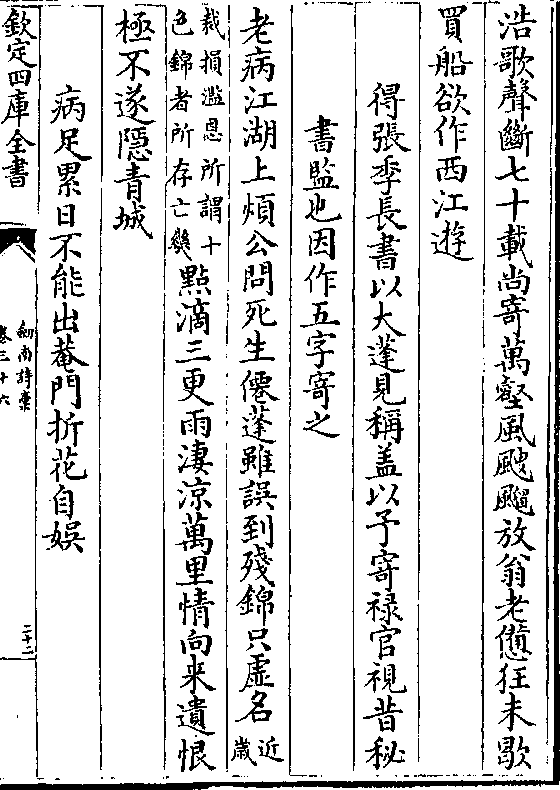 浩歌聲斷七十載尚寄萬壑風颼飀放翁老憊狂未歇
買船欲作西江遊
得張季長書以大蓬見稱盖以予寄禄官視昔秘
書監也因作五字寄之
老病江湖上煩公問死生僊蓬雖誤到殘錦只虚名近歲
裁損濫恩所謂十
色錦者所存亡幾點滴三更雨淒涼萬里情向来遺恨
極不遂隠青城
病足累日不能出菴門折花自娛
欽定四庫全書
劒南詩稾
卷三十六
二十二